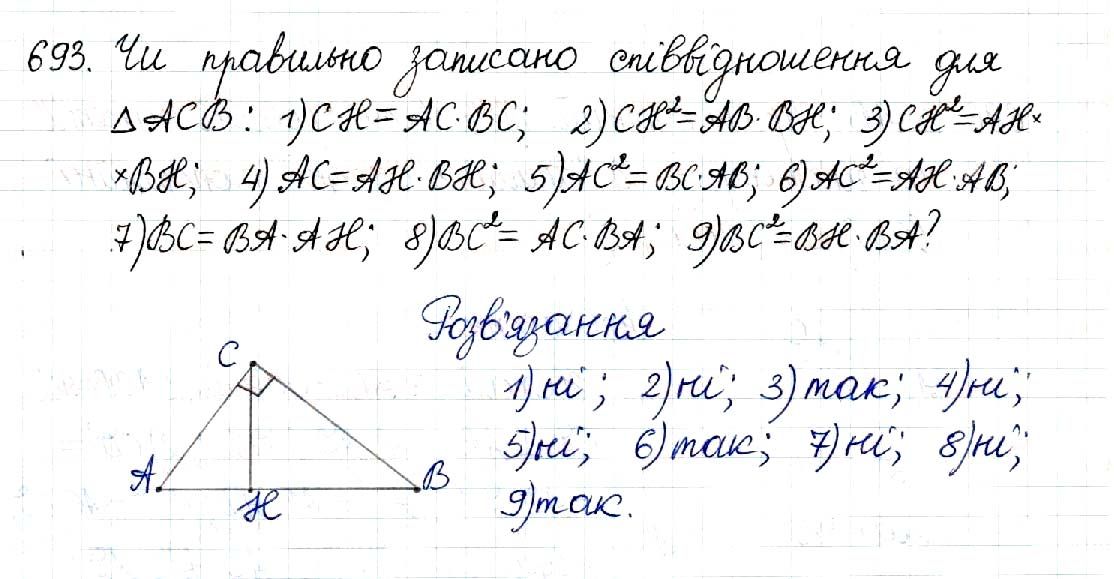 693. Чи правильно записано співвідношення для
△ACB: 1) CH = AC·BC; 2) CH² = AB·BH; 3) CH² = AH×
×BH; 4) AC = AH·BH; 5) AC² = BC·AB; 6) AC² = AH·AB;
7) BC = BA·AH; 8) BC² = AC·BA; 9) BC² = BH·BA?
Розв'язання
1) ні; 2) ні; 3) так; 4) ні;
5) ні; 6) так; 7) ні; 8) ні;
9) так.
C
A
B
H